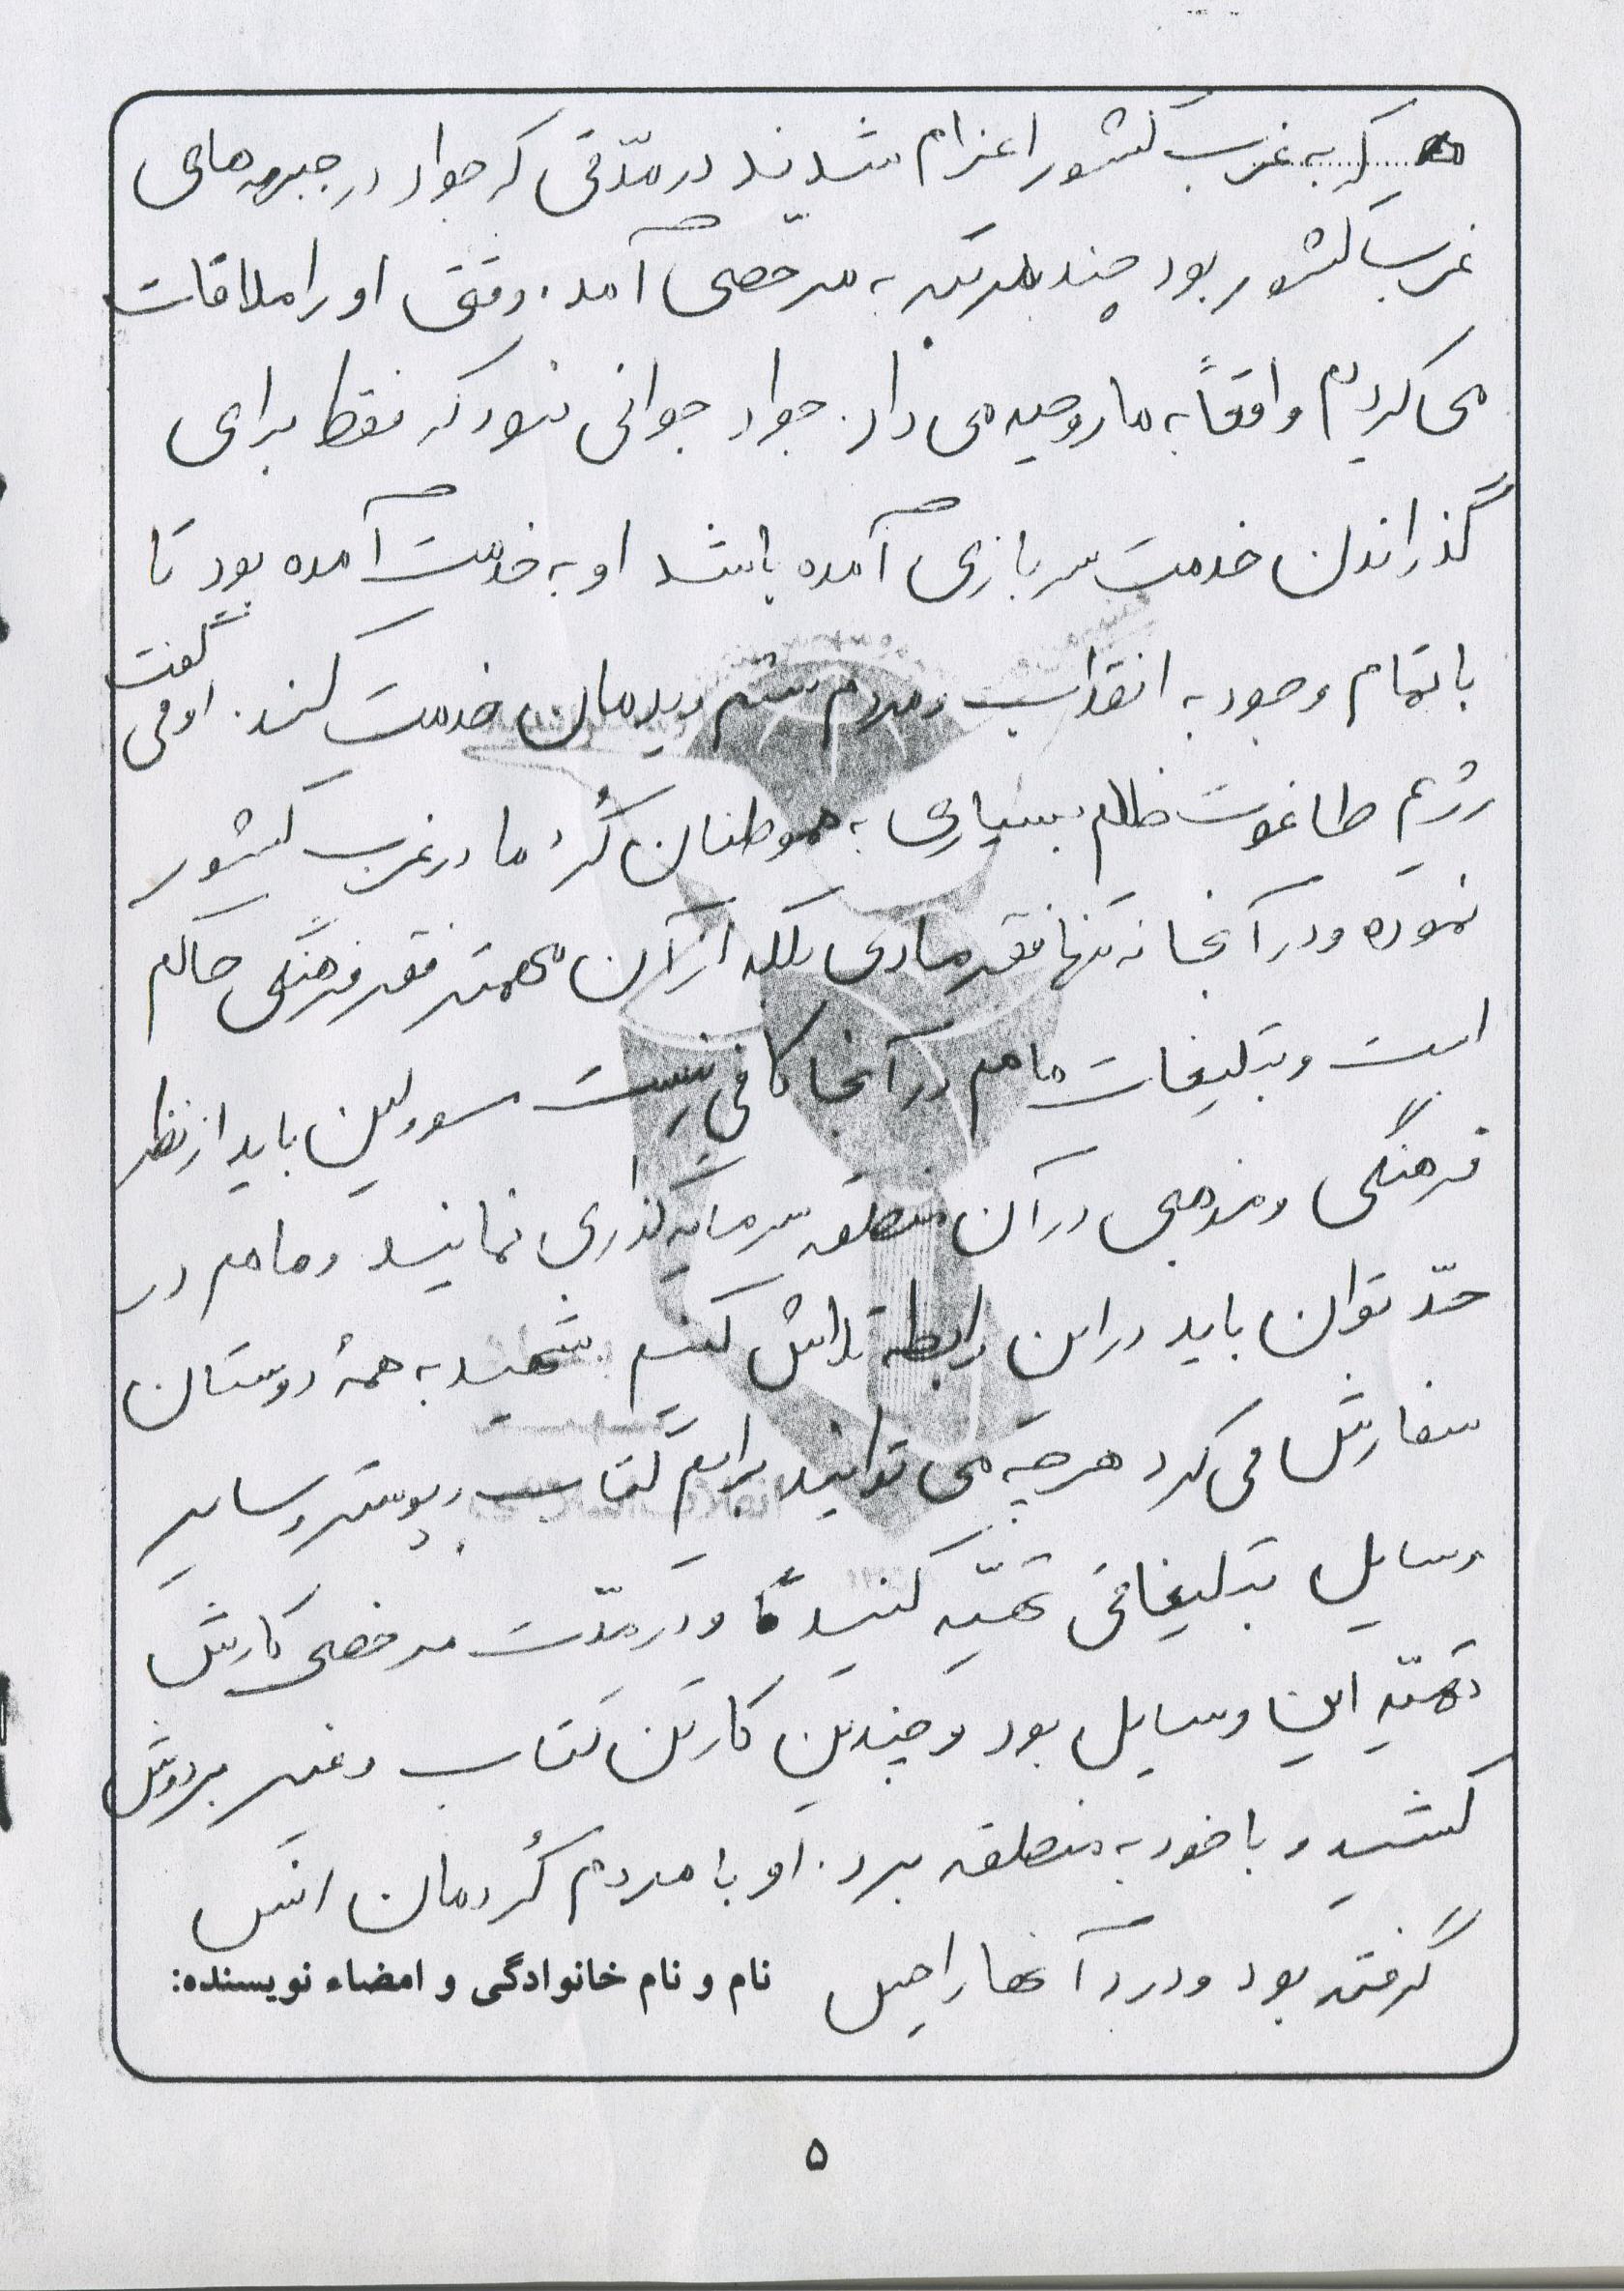 که به غرب کشور اعزام شدند در مدّتی که جواد در جبهه های
غرب کشور بود چند مرتبه به مرخصی آمد. وقتی او را ملاقات
می کردم واقعاً به ما روحیه می داد. جواد جوانی نبود که فقط برای
گذراندن خدمت سربازی آمده باشد او به خدمت آمده بود تا
با تمام وجود به انقلاب و مردم ستم دیدمان خدمت کند. او می گفت
رژیم طاغوت ظلم بسیاری به هموطنان کُرد ما در غرب کشور
نموده و در آنجا نه تنها فقر مادی بلکه از آن مهمتر فقر فرهنگی حاکم
است و تبلیغات ما هم در آنجا کافی نیست مسوولین باید از نظر
فرهنگی و مذهبی در آن منطقه سرمایه گذاری نمایند و ما هم در
حدّ توان باید در این رابطه تلاش کنیم. شهید به همهٔ دوستان
سفارش می کرد هر چه می توانید برایم کتاب و پوستر و سایر
وسایل تبلیغاتی تهیّه کنید و در مدّت مرخصی کارش
تهیّه این وسایل بود و چندین کارتن کتاب و غیره بر دوش
کشید و با خود به منطقه برد. او با مردم کُردمان انس
گرفته بود و درد آنها را
نام و نام خانوادگی و امضاء نویسنده:
۵